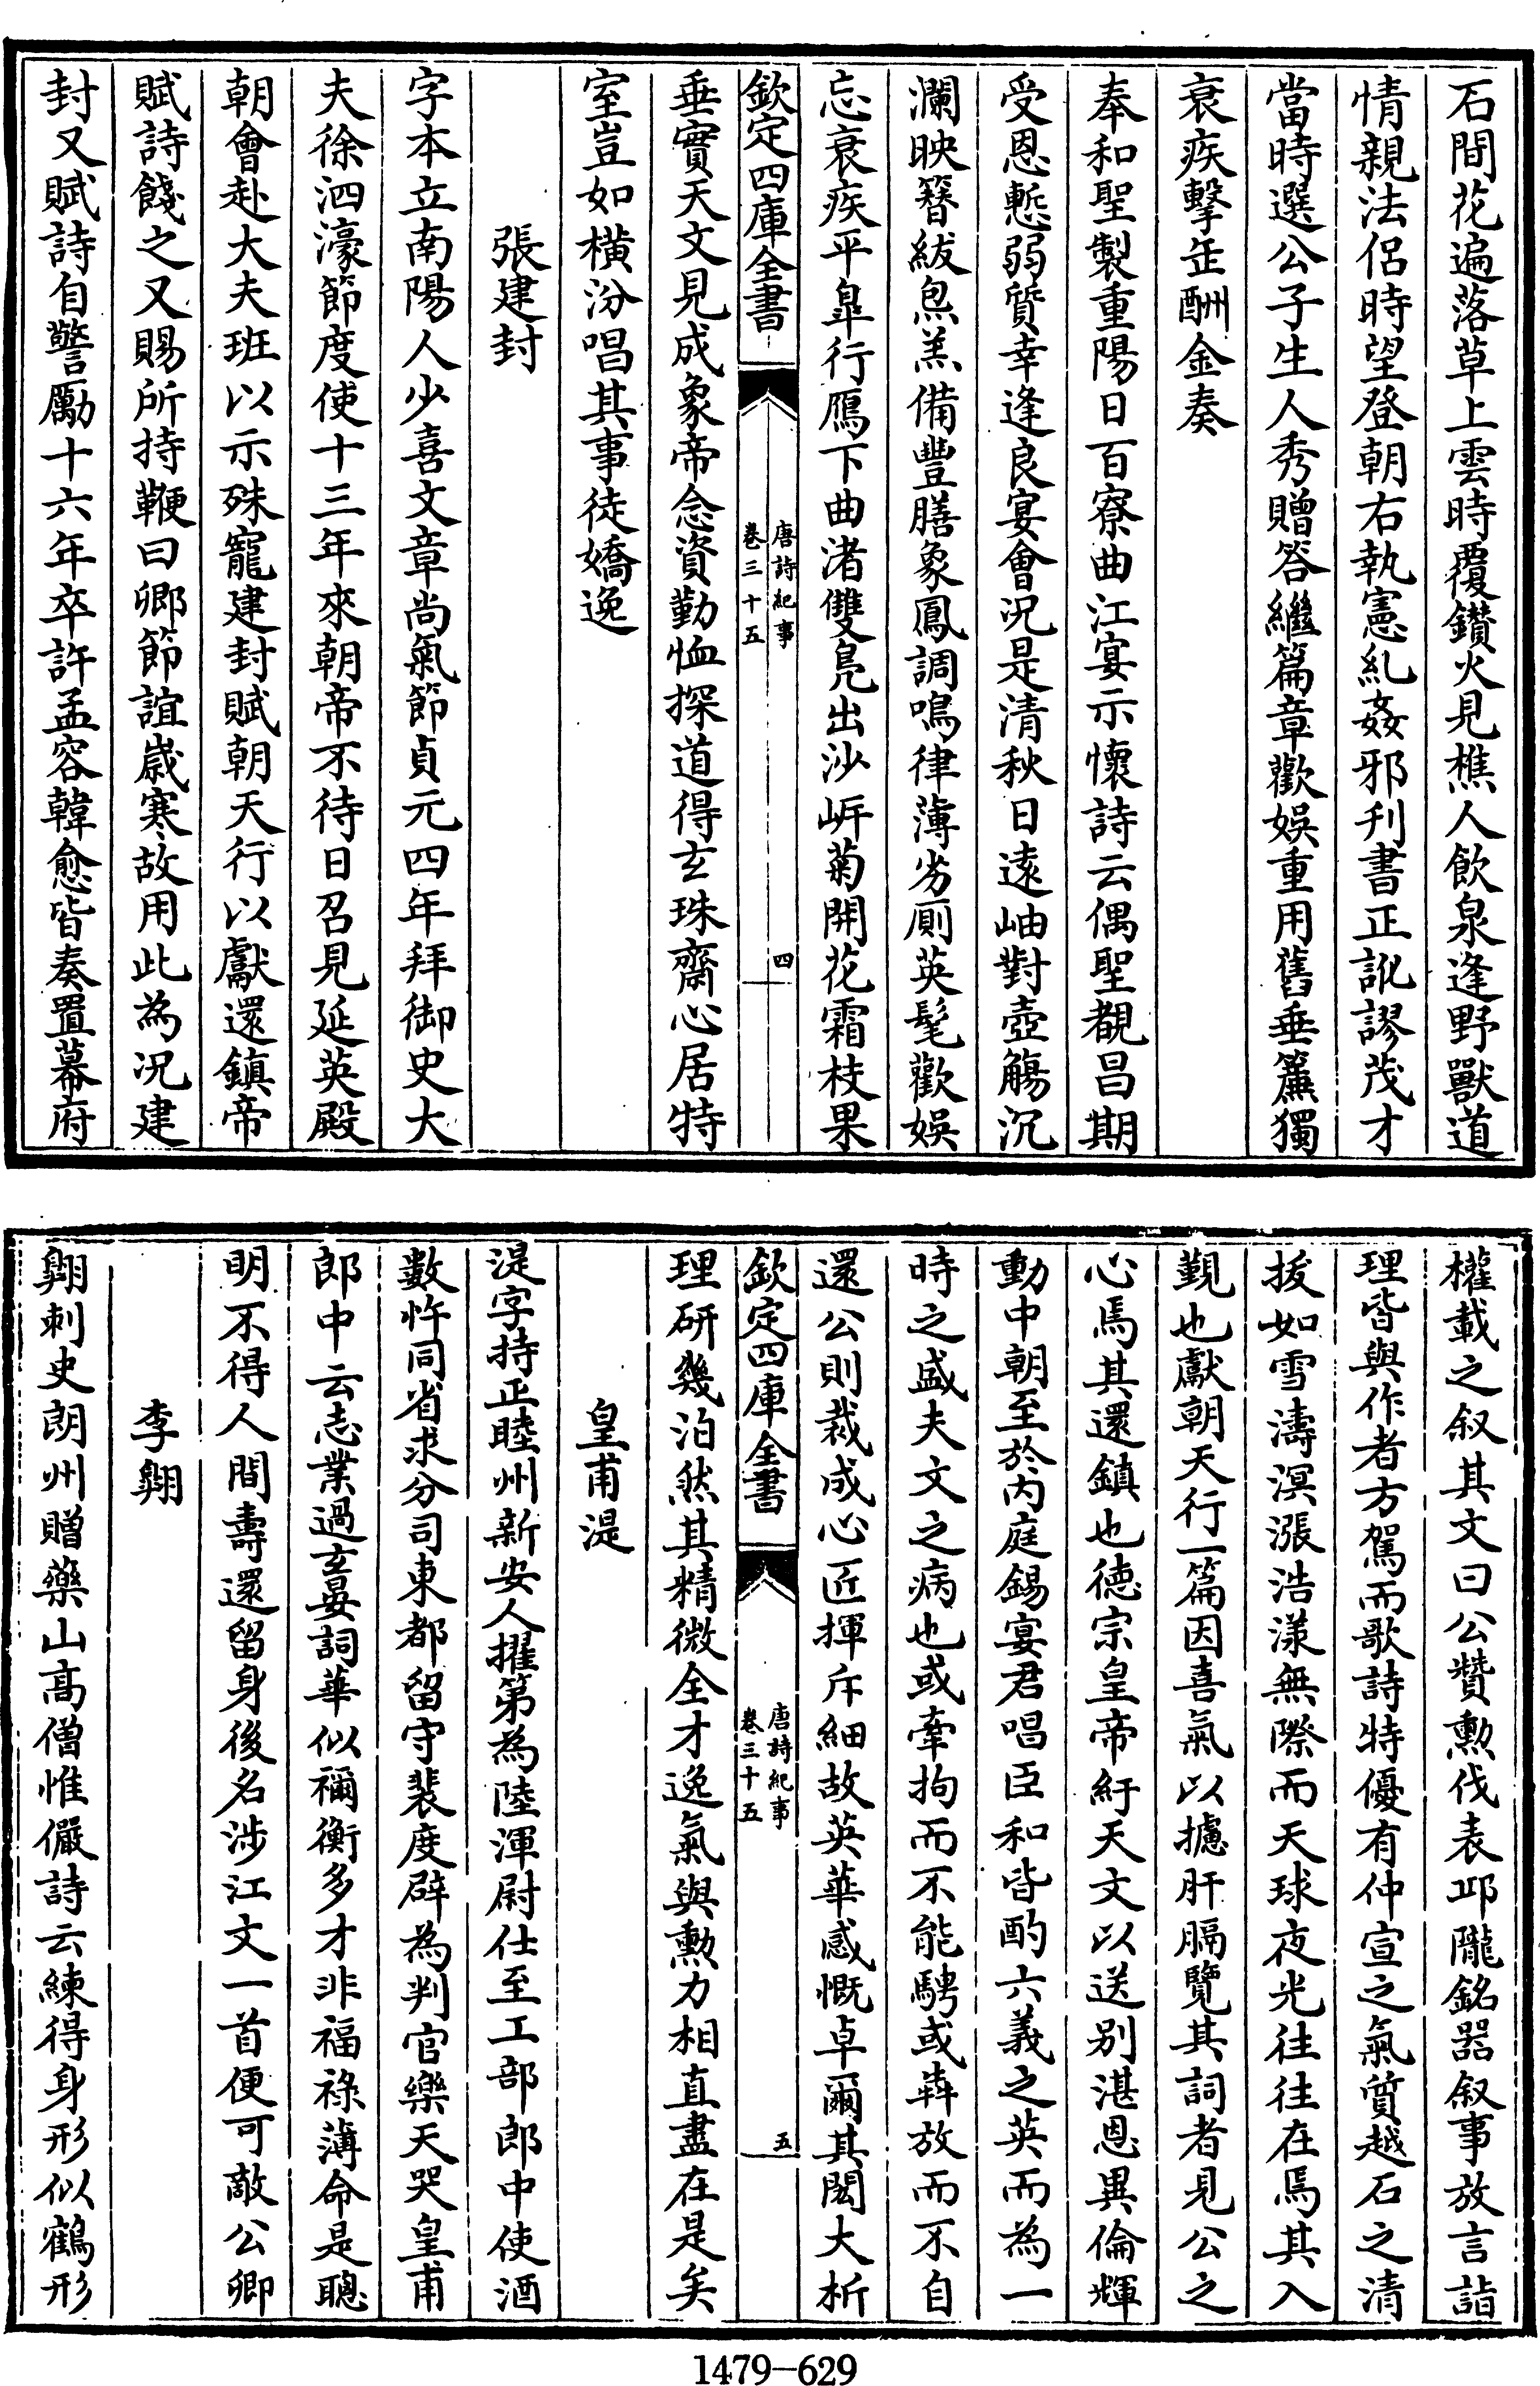 石間花遍落草上雲時覆鑚火見樵人飲泉逢野獸道
情親法侶時望登朝右執憲糺姦邪刋書正訛謬茂才
當時選公子生人秀贈答繼篇章歡娛重用舊垂簾獨
衰疾擊缶酬金奏
奉和聖製重陽日百寮曲江宴示懷詩云偶聖覩昌期
受恩慙弱質幸逢良宴會況是清秋日逺岫對壺觴沉
瀾映簪紱炰羔備豐膳象鳳調鳴律薄劣厠英髦歡娛
忘衰疾平臯行鴈下曲渚雙鳬出沙岍菊開花霜枝果
欽定四庫全書
唐詩紀事
卷三十五
四
垂實天文見成象帝念資勤恤探道得玄珠齋心居特
室豈如横汾唱其事徒嬌逸
張建封
字本立南陽人少喜文章尚氣節貞元四年拜御史大
夫徐泗濠節度使十三年來朝帝不待日召見延英殿
朝會赴大夫班以示殊寵建封賦朝天行以獻還鎮帝
賦詩餞之又賜所持鞭曰卿節誼嵗寒故用此為况建
封又賦詩自警勵十六年卒許孟容韓愈皆奏置幕府
權載之叙其文曰公贊勲伐表邛隴銘器叙事放言詣
理皆與作者方駕而歌詩特優有仲宣之氣質越石之清
拔如雪濤溟漲浩漾無際而天球夜光往往在焉其入
覲也獻朝天行一篇因喜氣以攄肝膈覽其詞者見公之
心焉其還鎮也徳宗皇帝紆天文以送别湛恩異倫輝
動中朝至於内庭錫宴君唱臣和皆酌六義之英而為一
時之盛夫文之病也或牽拘而不能騁或犇放而不自
還公則裁成心匠揮斥細故英華感慨卓爾其閎大析
欽定四庫全書
唐詩紀事
卷三十五
五
理研幾泊然其精微全才逸氣與勲力相直盡在是矣
皇甫湜
湜字持正睦州新安人擢第為陸渾尉仕至工部郎中使酒
數忤同省求分司東都留守裴度辟為判官樂天哭皇甫
郎中云志業過𤣥晏詞華似禰衡多才非福祿薄命是聰
明不得人間壽還留身後名涉江文一首便可敵公卿
李翺
翺刺史朗州贈藥山髙僧惟儼詩云練得身形似鶴形
1479—629